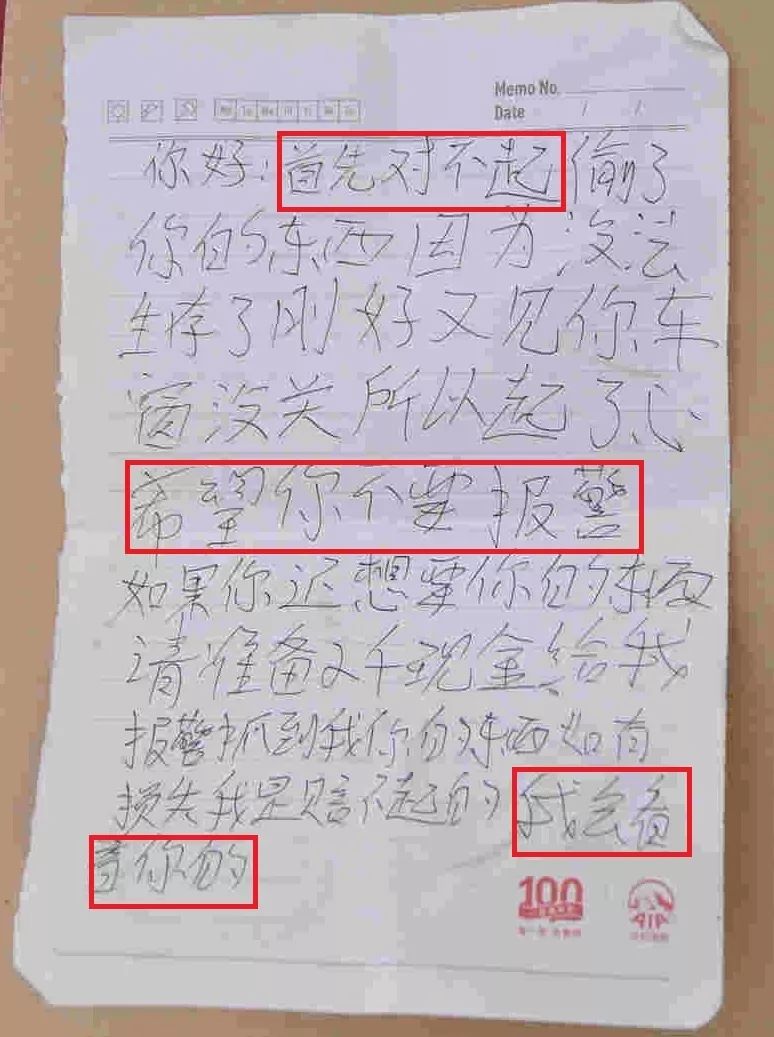 Memo No.
Date / /
Mo Tu We Th Fr Sa Su
你好:首先对不起偷了
你的东西因为没法
生存了刚好又见你车
窗没关所以起了心
希望你不要报警
如果你还想要你的东西
请准备2千现金给我
报警抓到我你的东西如有
损失我是赔不起的 我会看
着你的
100